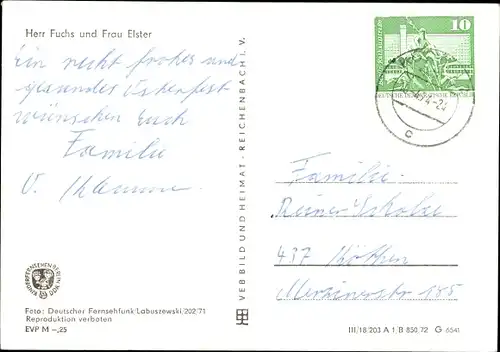 Herr Fuchs und Frau Elster
Ein recht frohes und
gesundes Osterfest
wünschen Euch
Familie
V.
KINDERFERNSEHEN BERLIN
DDR
Foto: Deutscher Fernsehfunk/Labuszewski/202/71
Reproduktion verboten
EVP M –,25
VEB BILD UND HEIMAT · REICHENBACH i. V.
10
DEUTSCHE DEMOKRATISCHE REPUBLIK
c
Familie
Reiner Scholze
437 Köthen
185
III/18/203 A 1 B 850/72 G 6541